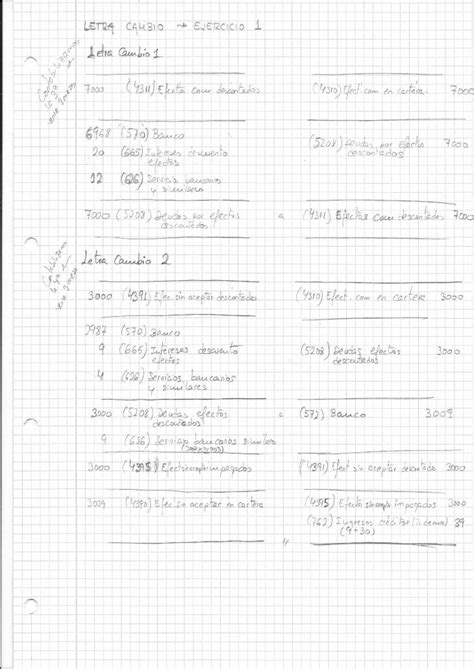 LETRA CAMBIO → EJERCICIO 1
Letra Cambio 1
7000 (4311) Efecto com descontados (4310) Efect com en cartera 7000
6968 (570) Banco
20 (665) Intereses descuento efectos (5208) Deudas por efectos descontados 7000
12 (626) Servicios bancarios y similares
7000 (5208) Deudas por efectos descontados a (4311) Efectos com descontados 7000
Letra Cambio 2
3000 (4391) Efec sin aceptar descontados (4310) Efect. com en cartera 3000
2987 (570) Banco
9 (665) Intereses descuento efectos (5208) Deudas efectos descontados 3000
4 (626) Servicios bancarios y similares
3000 (5208) Deudas efectos descontados a (572) Banco 3009
9 (626) Servicios bancarios similares
3000 (4395) Efect sin acept impagados (4391) Efect sin aceptar descontado 3000
3039 (4390) Efec sin aceptar en cartera (4395) Efecto sin acept impagados 3000
(762) Ingresos créditos 39
(9+30)